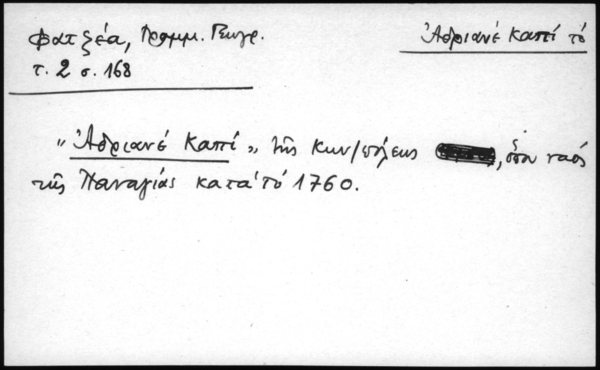 Φατζέα, Γραμμ. Γεωγρ.
Ἀδριανέ καπί τό
τ. 2 σ. 168
"Ἀδριανέ καπί" τῆς Κων/πόλεως , ὅπου ναός
τῆς Παναγίας κατά τό 1760.